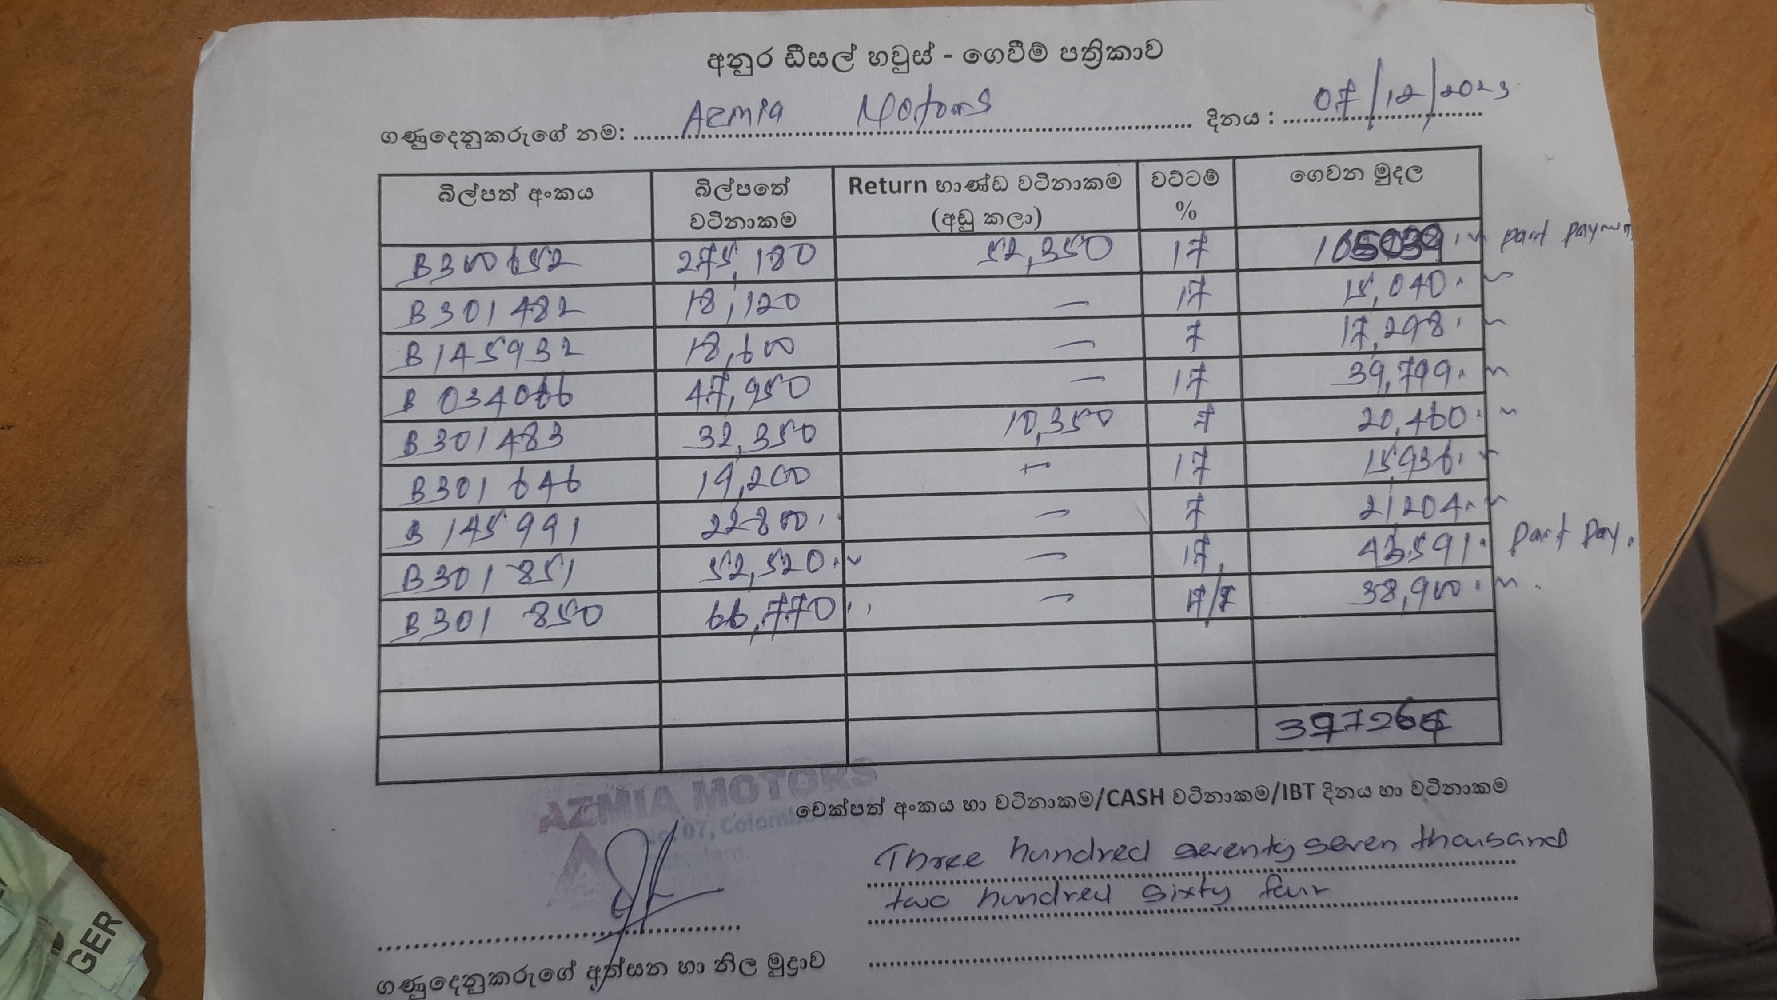 අනුර ඩීසල් හවුස් - ගෙවීම් පත්‍රිකාව
ගණුදෙනුකරුගේ නම: Azmia Motors දිනය : 07/12/2023
බිල්පත් අංකය බිල්පතේ වටිනාකම Return භාණ්ඩ වටිනාකම (අඩු කලා) වට්ටම් % ගෙවන මුදල
B300652 275,180 52,350 17 105039 part payment
B301482 18,120 — 17 15,040
B145932 18,600 — 7 17,298
B 034066 47,950 — 17 39,799
B301483 32,350 10,350 7 20,460
B301646 19,200 — 17 15936
B 145991 22800 — 7 21204
B301851 52,520 — 17 43591 part pay.
B301 850 66,770 — 17/7 38,900
397264
AZMIA MOTORS
චෙක්පත් අංකය හා වටිනාකම/CASH වටිනාකම/IBT දිනය හා වටිනාකම
07, Colombo
Three hundred seventy seven thousand
two hundred sixty four
ගණුදෙනුකරුගේ අත්සන හා නිල මුද්‍රාව
GER